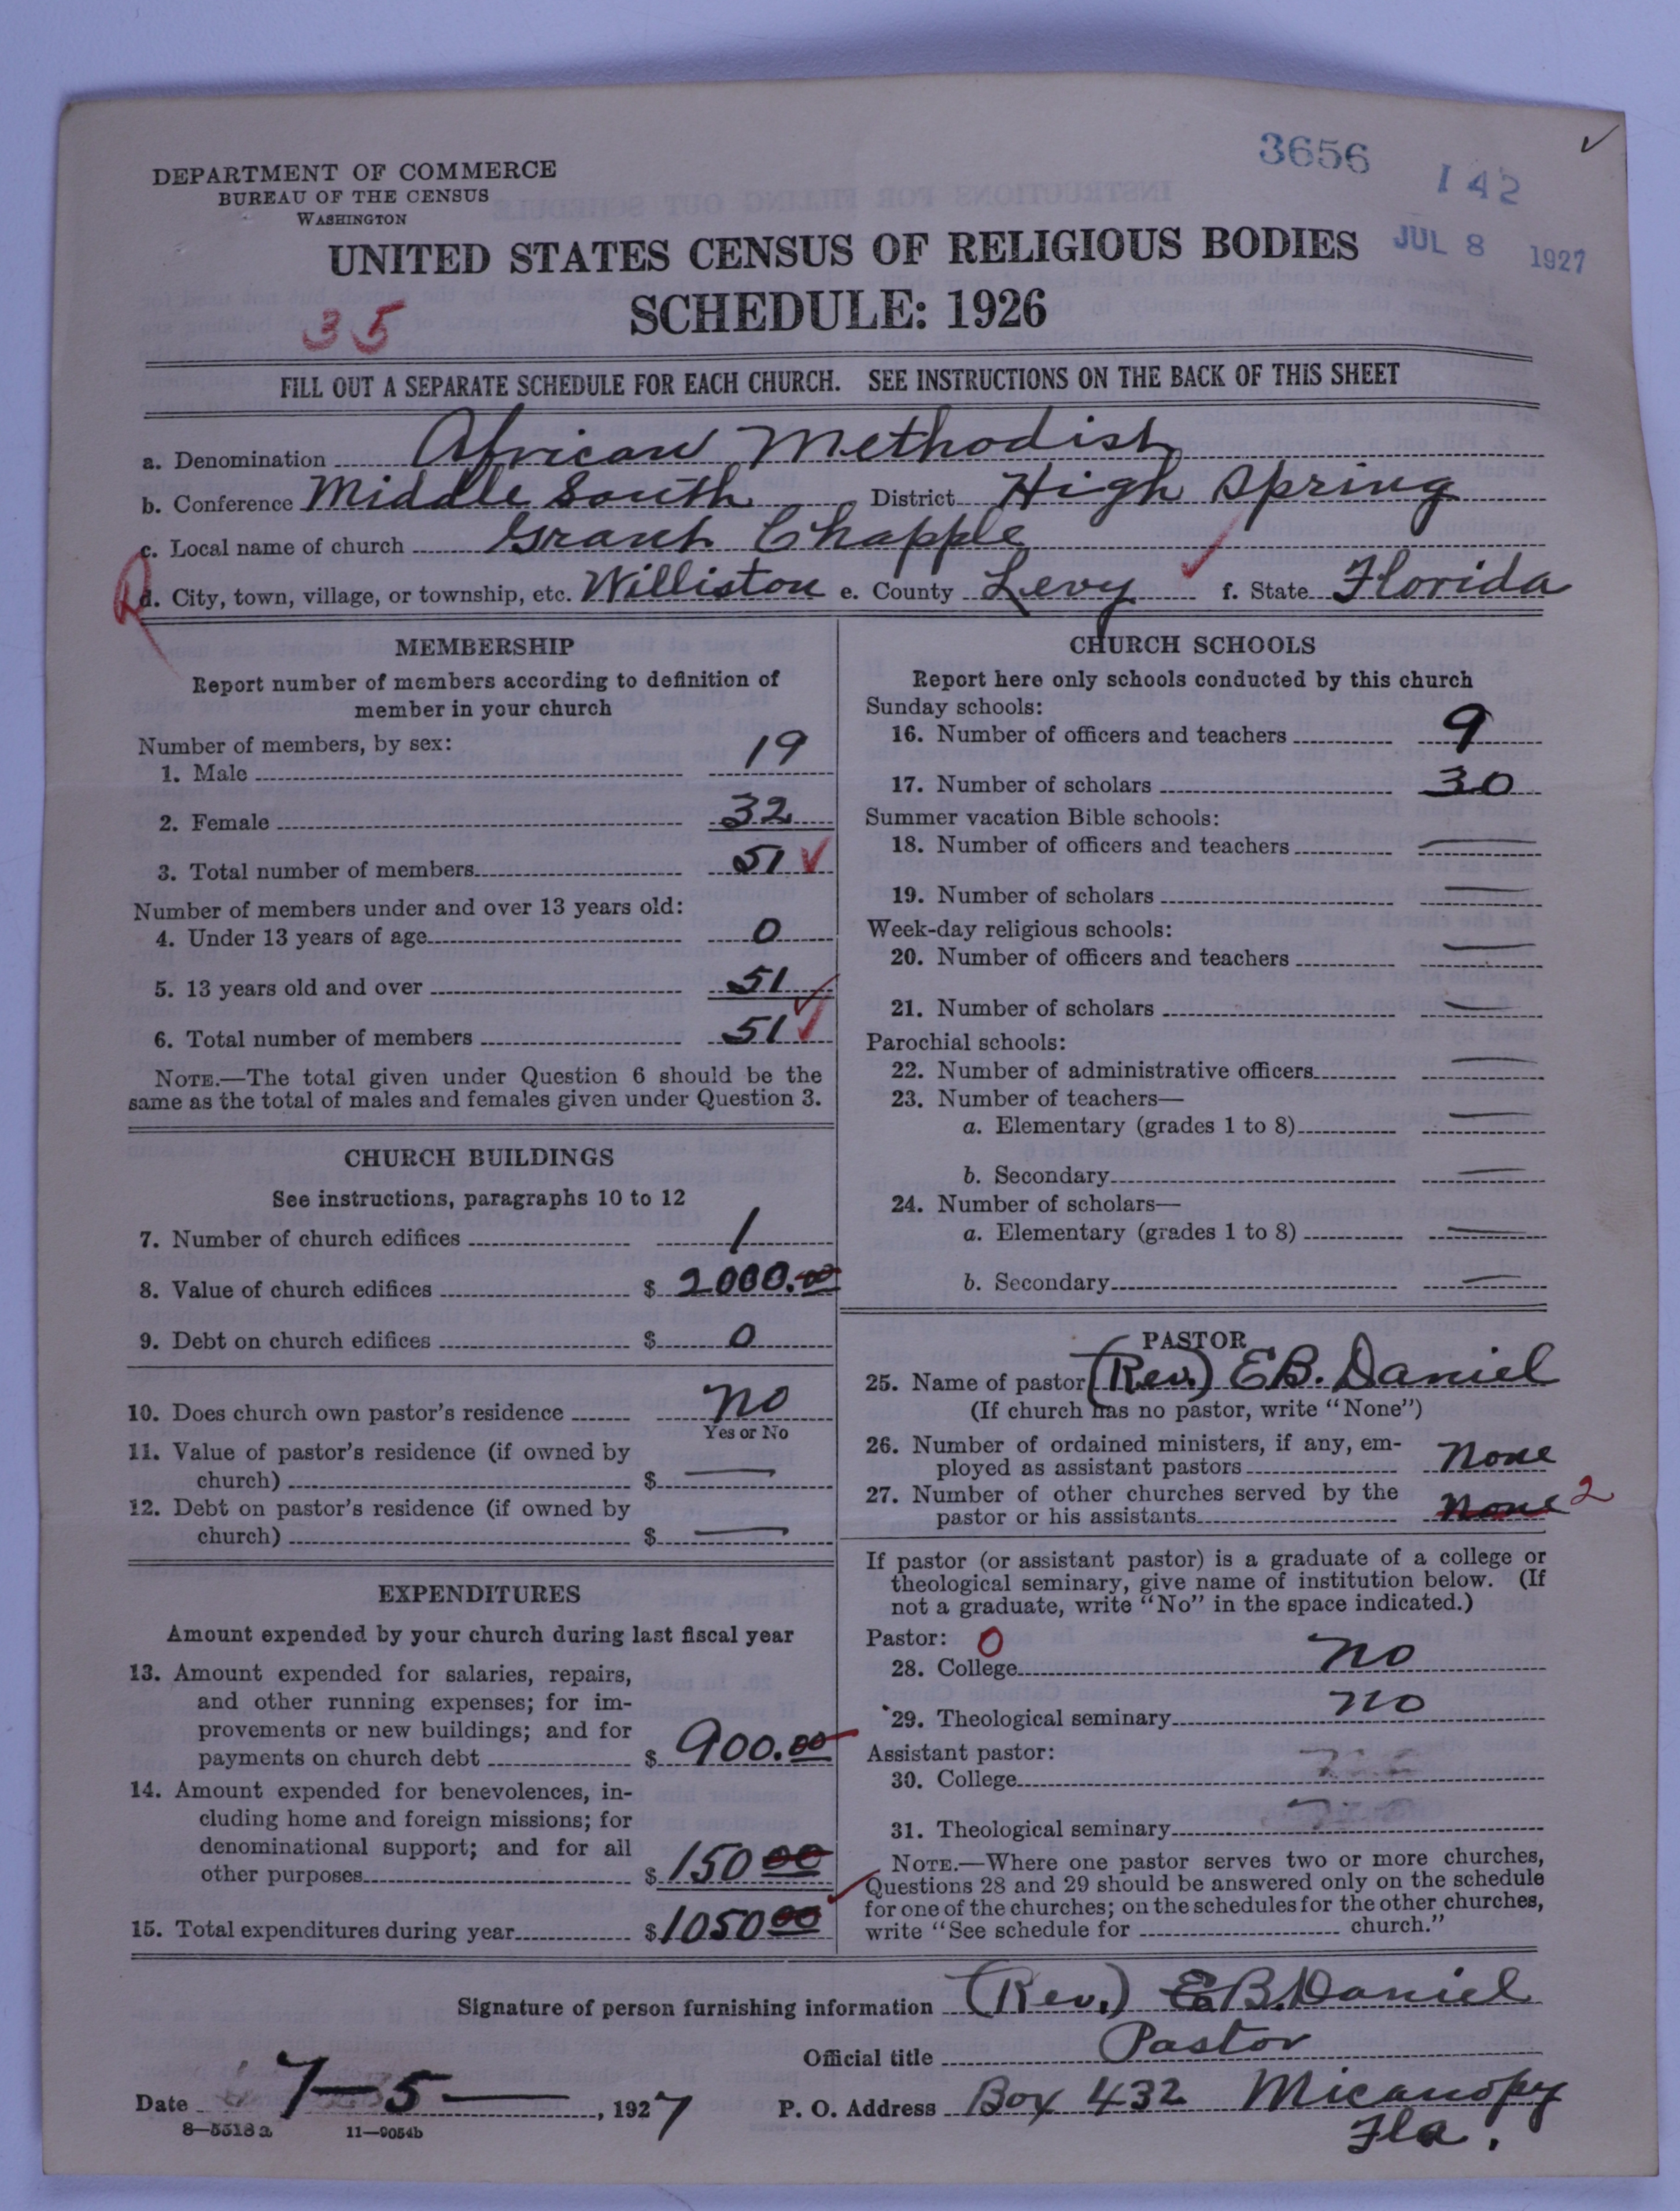 3656
142
DEPARTMENT OF COMMERCE
BUREAU OF THE CENSUS
WASHINGTON
JUL 8 1927
UNITED STATES CENSUS OF RELIGIOUS BODIES
SCHEDULE: 1926
35
FILL OUT A SEPARATE SCHEDULE FOR EACH CHURCH. SEE INSTRUCTIONS ON THE BACK OF THIS SHEET
a. Denomination African Methodist
b. Conference Middle South District High Spring
c. Local name of church Grant Chapple
R d. City, town, village, or township, etc. Williston e. County Levy f. State Florida
MEMBERSHIP
Report number of members according to definition of
member in your church
Number of members, by sex:
1. Male 19
2. Female 32
3. Total number of members 51
Number of members under and over 13 years old:
4. Under 13 years of age 0
5. 13 years old and over 51
6. Total number of members 51
NOTE.—The total given under Question 6 should be the
same as the total of males and females given under Question 3.
CHURCH BUILDINGS
See instructions, paragraphs 10 to 12
7. Number of church edifices 1
8. Value of church edifices $ 2000.00
9. Debt on church edifices $ 0
10. Does church own pastor's residence no
Yes or No
11. Value of pastor's residence (if owned by
church) $ —
12. Debt on pastor's residence (if owned by
church) $ —
EXPENDITURES
Amount expended by your church during last fiscal year
13. Amount expended for salaries, repairs,
and other running expenses; for im-
provements or new buildings; and for
payments on church debt $ 900.00
14. Amount expended for benevolences, in-
cluding home and foreign missions; for
denominational support; and for all
other purposes $ 150 00
15. Total expenditures during year $ 1050 00
CHURCH SCHOOLS
Report here only schools conducted by this church
Sunday schools:
16. Number of officers and teachers 9
17. Number of scholars 30
Summer vacation Bible schools:
18. Number of officers and teachers —
19. Number of scholars —
Week-day religious schools:
20. Number of officers and teachers —
21. Number of scholars —
Parochial schools:
22. Number of administrative officers —
23. Number of teachers—
a. Elementary (grades 1 to 8) —
b. Secondary —
24. Number of scholars—
a. Elementary (grades 1 to 8) —
b. Secondary —
PASTOR
25. Name of pastor (Rev.) E B. Daniel
(If church has no pastor, write "None")
26. Number of ordained ministers, if any, em-
ployed as assistant pastors none
27. Number of other churches served by the
pastor or his assistants none 2
If pastor (or assistant pastor) is a graduate of a college or
theological seminary, give name of institution below. (If
not a graduate, write "No" in the space indicated.)
Pastor: 0
28. College no
29. Theological seminary no
Assistant pastor:
30. College
31. Theological seminary
NOTE.—Where one pastor serves two or more churches,
Questions 28 and 29 should be answered only on the schedule
for one of the churches; on the schedules for the other churches,
write "See schedule for church."
Signature of person furnishing information (Rev.) E. B. Daniel
Official title Pastor
Date 7-5-, 1927 P. O. Address Box 432 Micanopy
Fla.
8—5518a 11—9054b